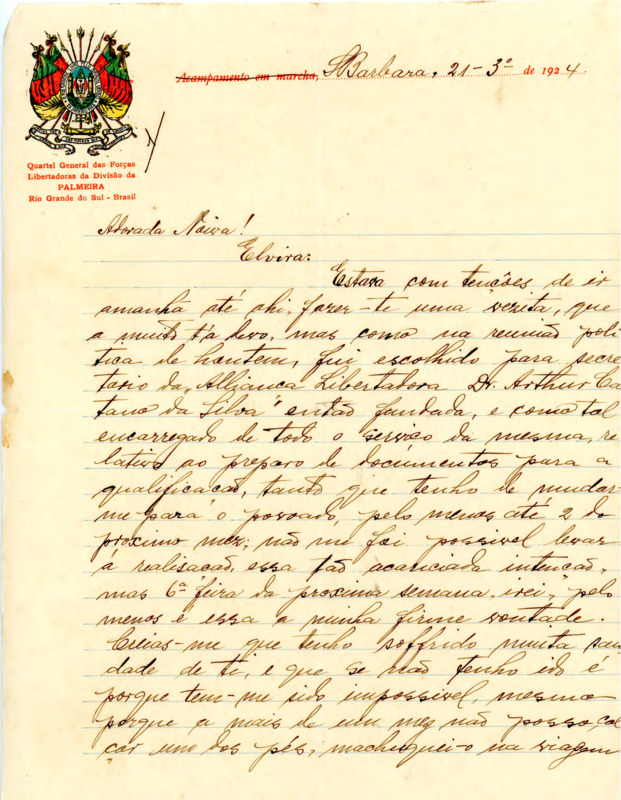 Acampamento em marcha, S Barbara, 21-3º de 1924
Quartel General das Forças
Libertadoras da Divisão da
PALMEIRA
Rio Grande do Sul - Brasil
Adorada Noiva!
Elvira:
Estava com tenções de ir
amanha até ahi, fazer-te uma vezita, que
a muito t'a devo, mas como na reunião poli
tica de hontem, fui escolhido para secre
tario da "Alliança Libertadora Dr. Arthur Ca
etano da Silva" então fundada, e como tal
encarregado de todo o serviço da mesma, re
lativo ao preparo de documentos para a
qualificação, tanto que tenho de mudar-
me para o povoado, pelo menos até 2 do
proximo mez; não me foi possivel levar
á realisação, essa tão acariciada intenção,
mas 6ª feira da proxima semana irei, pelo
menos é essa a minha firme vontade.
Creias-me que tenho soffrido muita sau
dade de ti, e que se não tenho ido é
porque tem-me sido impossivel, mesmo
porque a mais de um mez não posso cal
çar uno dos pés, machuquei-o na viagem